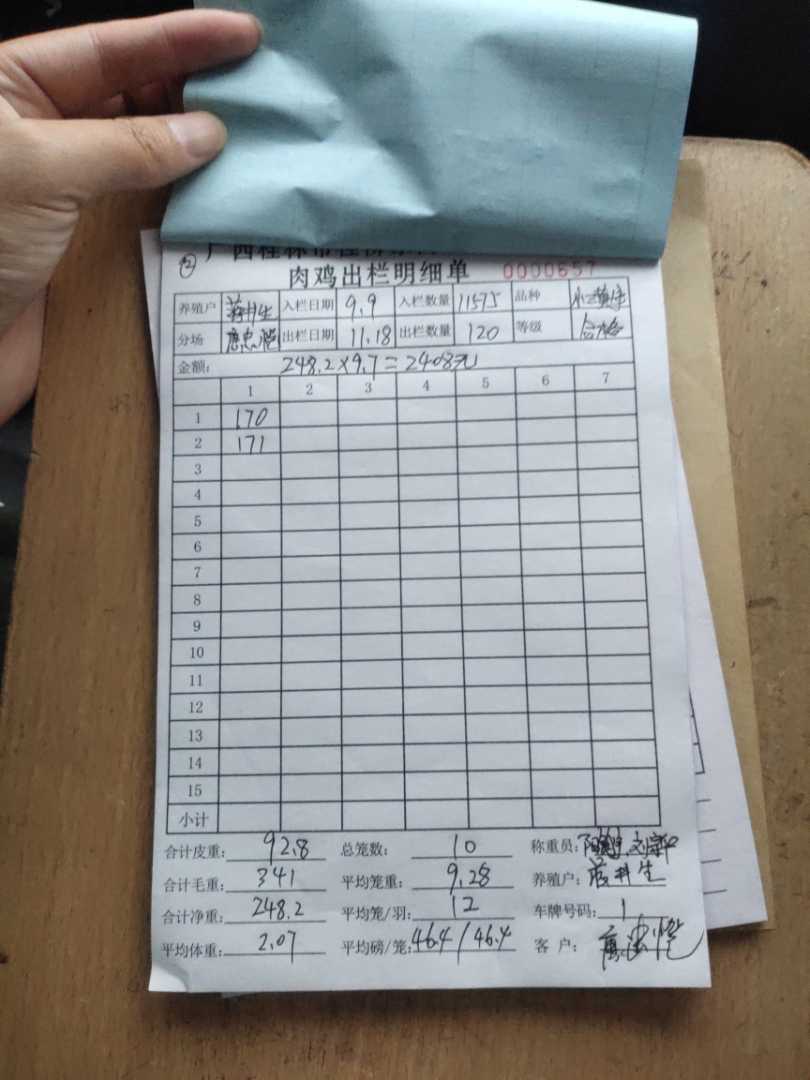 ②
肉鸡出栏明细单 0000657
养殖户 蒋井生 入栏日期 9.9 入栏数量 11575 品种
分场 入栏日期 11.18 出栏数量 120 等级 合格
金额: 248.2×9.7=2408元
1 2 3 4 5 6 7
1 170
2 171
3
4
5
6
7
8
9
10
11
12
13
14
15
小计
合计皮重: 92.8 总笼数: 10 称重员:
合计毛重: 341 平均笼重: 9.28 养殖户: 蒋井生
合计净重: 248.2 平均笼/羽: 12 车牌号码: 1
平均体重: 2.07 平均磅/笼: 46.4/46.4 客户: